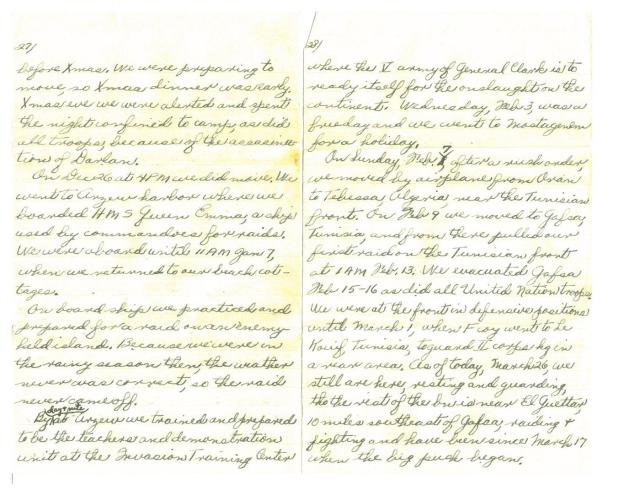 27/
before Xmas. We were preparing to
move, so Xmas dinner was early.
Xmas eve we were alerted and spent
the night confined to camp, as did
all troops, because of the assassina-
tion of Darlan.
On Dec 26 at 4PM we did move. We
went to Arzew harbor where we
boarded HMS Queen Emma, a ship
used by commandoes for raids.
We were aboard until 11 AM Jan 7,
when we returned to our beach cot-
tages.
On board ship we practiced and
prepared for a raid on an enemy
held island. Because we were in
the rainy season then the weather
never was correct, so the raid
never came off.
day & nite
at Arzew we trained and prepared
to be the teachers and demonstration
unit at the Invasion Training Center
28/
where the V army of General Clark is to
ready itself for the onslaught on the
continent. Wednesday, Feb 3, was a
free day and we went to Mostaganem
for a holiday.
On Sunday, Feb 7, after a rush order,
we moved by airplane from Oran
to Tebessa, Algeria near the Tunisian
front. On Feb 9 we moved to Gafsa,
Tunisia and from there pulled our
first raid on the Tunisian front
at 1 AM Feb. 13. We evacuated Gafsa
Feb 15-16 as did all United Nation troops.
We were at the front in defensive positions
until March 1, when F coy went to Le
Kouif, Tunisia, to guard II corps hq in
a rear area. As of today, March 26, we
still are here, resting and guarding,
tho the rest of the bn is near El Guettar,
10 miles southeast of Gafsa, raiding &
fighting and have been since March 17
when the big push began.